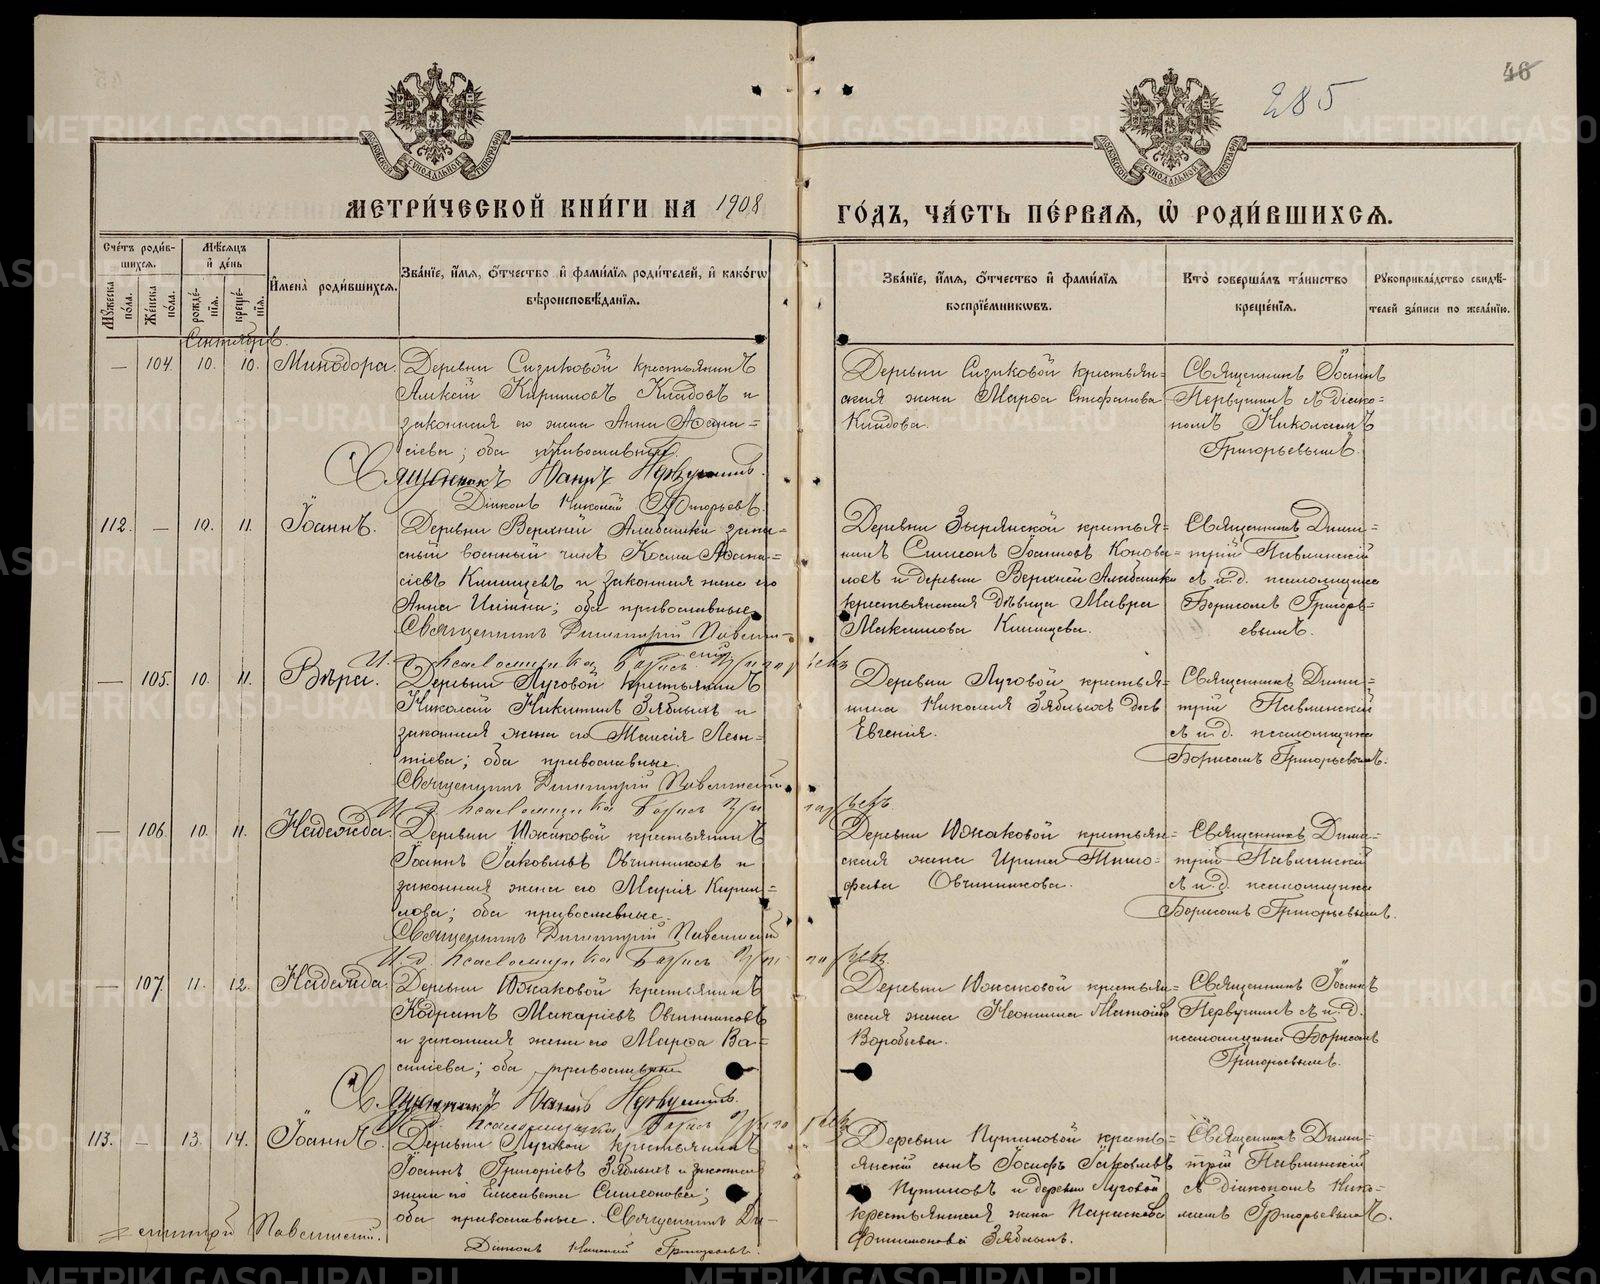 46
285
МЕТРИ́ЧЕСКОЙ КНИ́ГИ НА 1908
ГО́ДЪ, ЧА́СТЬ ПЕ́РВАЯ, Ѡ҆ РОДИ́ВШИХСЯ.
Сче́тъ роди́в-
шихся.
Мѣ́сяцъ
и҆ де́нь
Мꙋ́жеска
по́ла.
Же́нска
по́ла.
рожде́-
нїя.
креще́-
нїя.
И҆мена̀ роди́вшихся.
Зва́нїе, и҆́мя, ѻ҆́тчество и҆ фами́лїя роди́телей, и҆ како́гѡ
вѣроисповѣ́данїя.
Зва́нїе, и҆́мя, ѻ҆́тчество и҆ фами́лїя
воспрїе́мникѡвъ.
Кто̀ соверша́лъ та́инство
креще́нїя.
Рꙋкоприкла́дство свидѣ́-
телей за́писи по жела́нїю.
Сентябрь.
— 104. 10. 10. Минодора.
Деревни Сизиковой крестьянинъ
Алексій Кириловъ Киндовъ и
законная его жена Анна Аѳана=
сіева; оба православные.
Священникъ Іоаннъ Первушинъ.
Діаконъ Николай Григорьевъ.
Деревни Сизиковой крестьян=
ская жена Марѳа Стефанова
Киндова.
Священникъ Іоаннъ
Первушинъ съ діако=
номъ Николаемъ
Григорьевымъ.
112. — 10. 11. Іоаннъ.
Деревни Верхней Алабашки запа=
сный военный чинъ Косма Аѳана=
сіевъ Клищевъ и законная жена его
Анна Ильина; оба православные.
Священникъ Димитрій Павлин=
скій
И. д. псаломщика Борисъ Григорьевъ
Деревни Зырянской крестья=
нинъ Симеонъ Іоанновъ Конова=
ловъ и деревни Верхней Алабашки
крестьянская дѣвица Мавра
Максимова Клищева.
Священникъ Дими=
трій Павлинскій
съ и. д. псаломщика
Борисомъ Григорь=
евымъ.
— 105. 10. 11. Вѣра.
Деревни Луговой крестьянинъ
Николай Никитинъ Зяблыхъ и
законная жена его Таисія Леон=
тіева; оба православные.
Священникъ Димитрій Павлинскій
И. д. псаломщика Борисъ Григорьевъ.
Деревни Луговой крестья=
нина Николая Зяблыхъ дочь
Евгенія.
Священникъ Дими=
трій Павлинскій
съ и. д. псаломщика
Борисомъ Григорьевымъ.
— 106. 10. 11. Надежда.
Деревни Южаковой крестьянинъ
Іоаннъ Іаковлевъ Овчинниковъ и
законная жена его Марія Кирил=
лова; оба православные.
Священникъ Димитрій Павлинскій
И. д. псаломщика Борисъ Григорьевъ.
Деревни Южаковой крестьян=
ская жена Ирина Тимо=
феева Овчинникова.
Священникъ Дими=
трій Павлинскій
съ и. д. псаломщика
Борисомъ Григорьевымъ.
— 107. 11. 12. Надежда.
Деревни Южаковой крестьянинъ
Кодратъ Макаріевъ Овчинниковъ
и законная жена его Марѳа Ва=
силіева; оба православные
Священникъ Іоаннъ Первушинъ.
И. д. псаломщика Борисъ Григорьевъ
Деревни Южаковой крестьян=
ская жена Неонила
Воробьева.
Священникъ Іоаннъ
Первушинъ съ и. д.
псаломщика Борисомъ
Григорьевымъ.
113. — 13. 14. Іоаннъ.
Деревни Луговой крестьянинъ
Іоаннъ Григоріевъ Зяблыхъ и законная
жена его Елисавета Симеонова;
оба православные. Священникъ Ди-
митрій Павлинскій.
Діаконъ Николай Григорьевъ.
Деревни Путиловой кресть=
янскій сынъ Іосифъ Іаковлевъ
Путиловъ и деревни Луговой
крестьянская жена Параскева
Филимонова Зяблыхъ.
Священникъ Дими=
трій Павлинскій
съ діакономъ Нико=
лаемъ Григорьевымъ.
METRIKI.GASO-URAL.RU